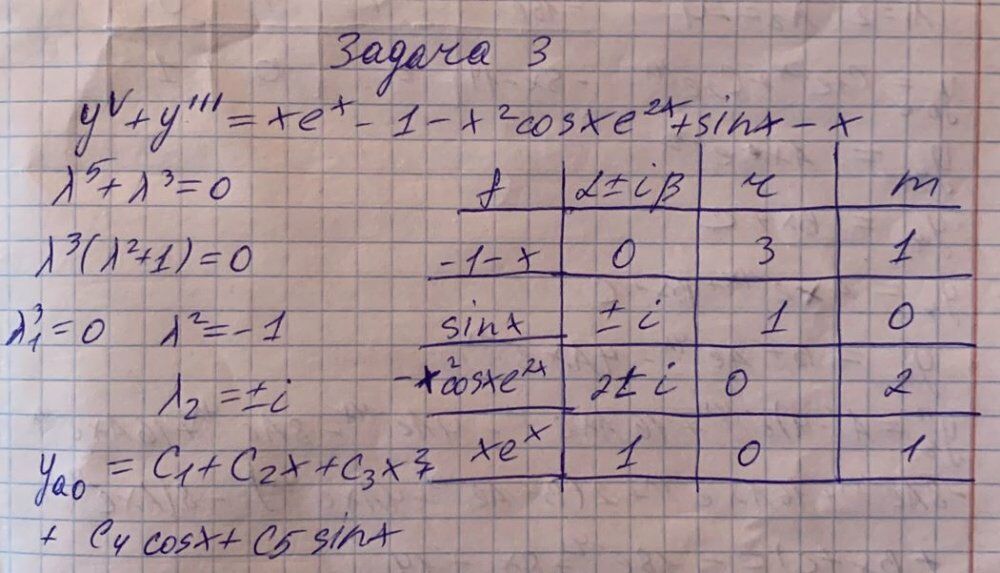 Задача 3
y^V + y''' = xe^x - 1 - x^2cosxe^{2x} + sinx - x
λ^5 + λ^3 = 0
λ^3(λ^2+1) = 0
λ_1^3 = 0 λ^2 = -1
λ_2 = ±i
y_{ao} = C_1 + C_2x + C_3x^2 +
+ C_4 cosx + C_5 sinx
f α±iβ r m
-1-x 0 3 1
sinx ±i 1 0
-x^2cosxe^{2x} 2±i 0 2
xe^x 1 0 1